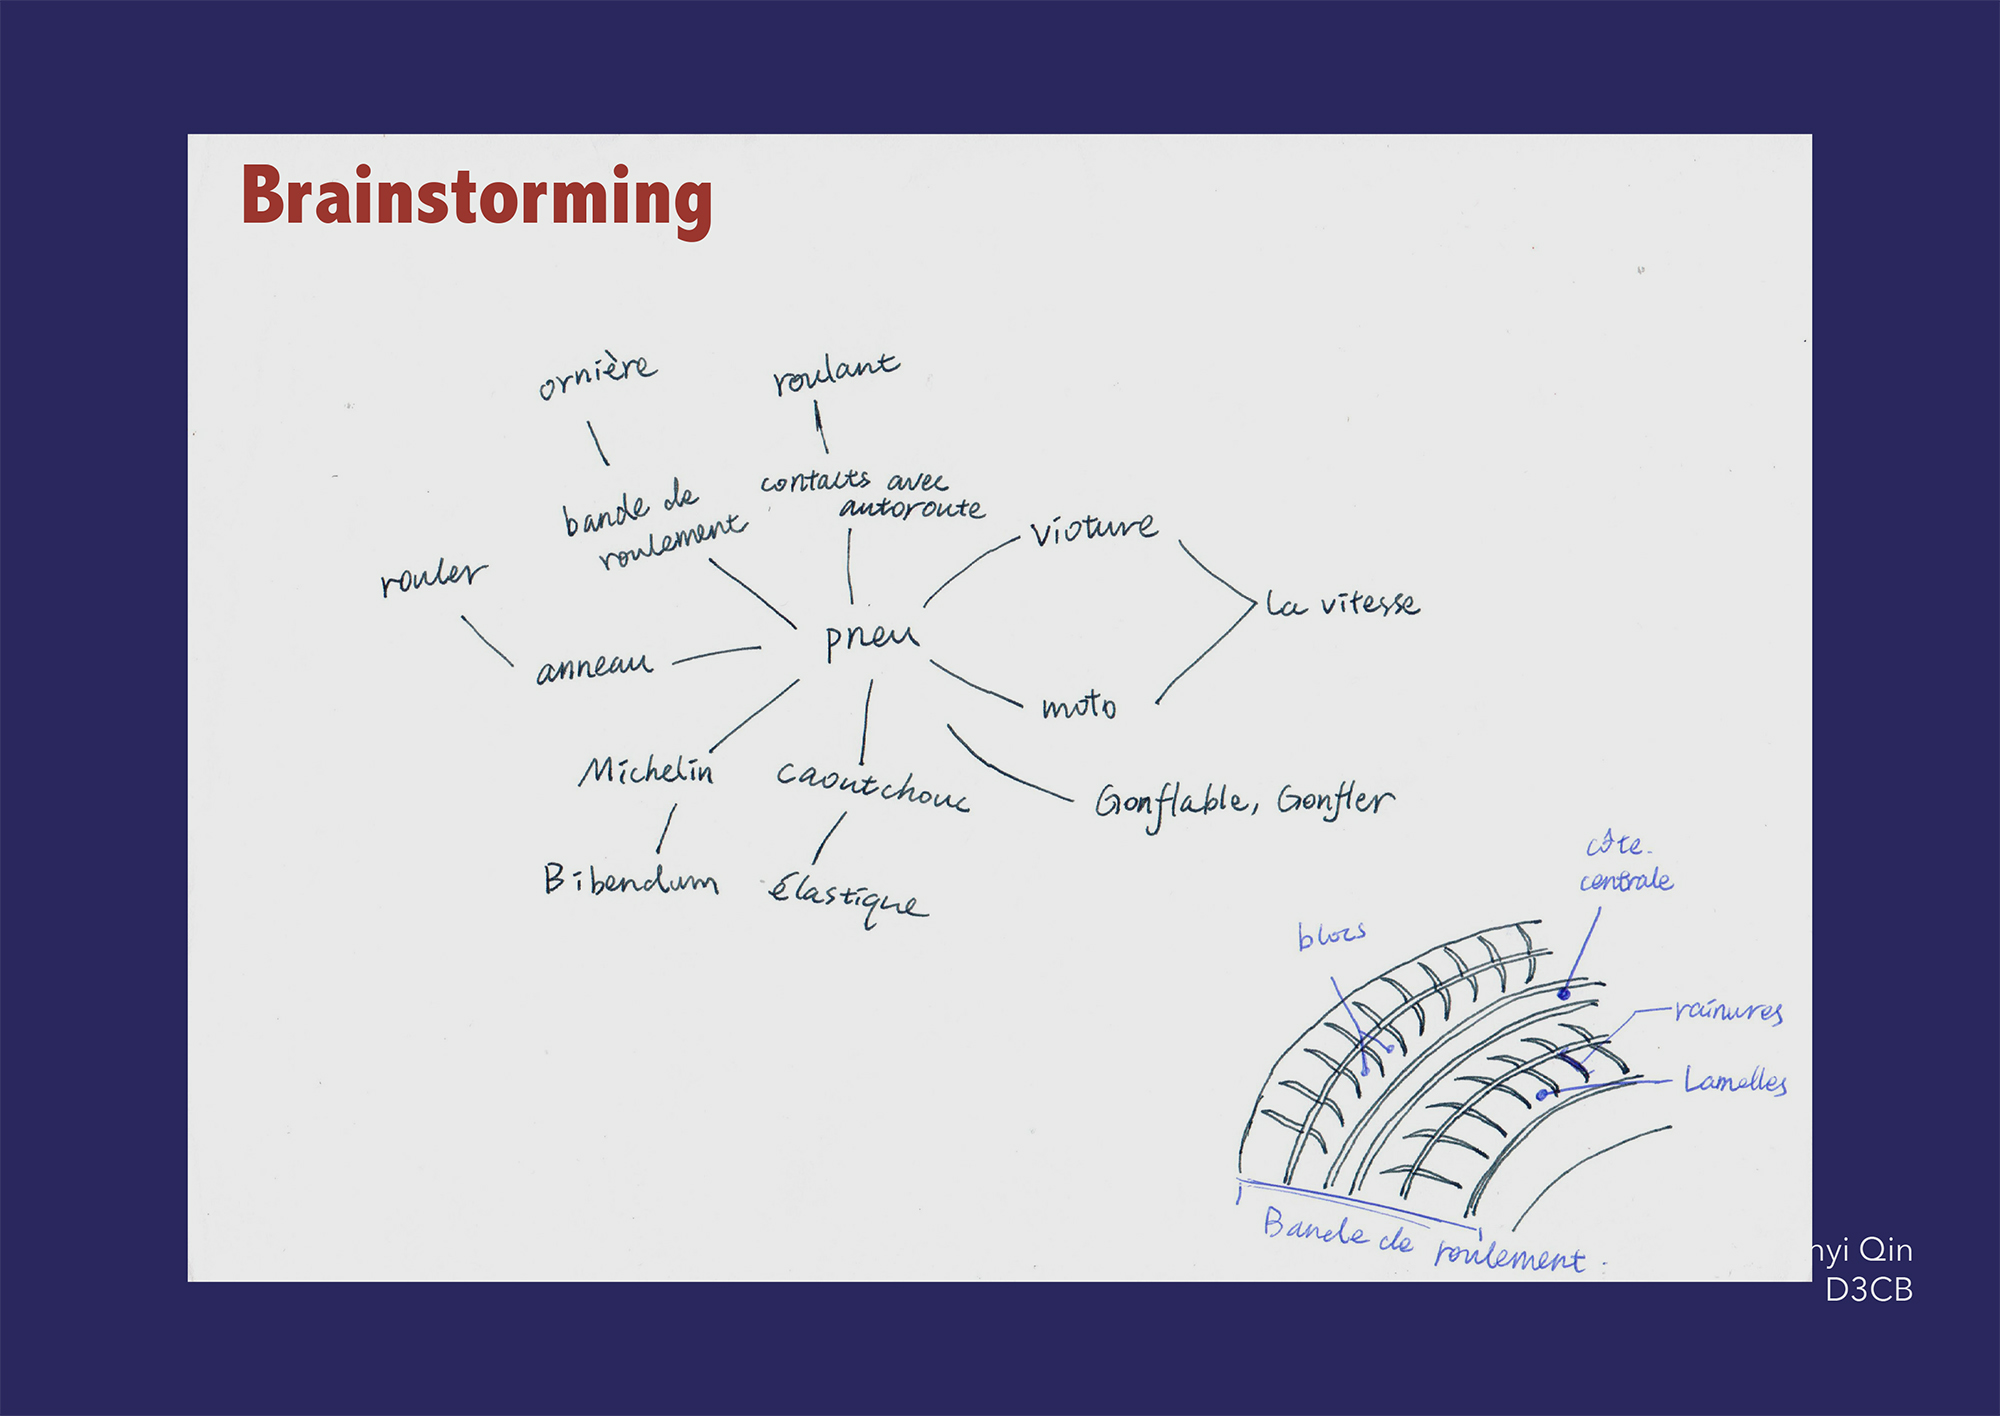 Brainstorming
ornière
roulant
bande de
roulement
contacts avec
autoroute
vioture
rouler
La vitesse
pneu
anneau
moto
Michelin
caoutchouc
Gonflable, Gonfler
Bibendum
élastique
côte
centrale
blocs
rainures
Lamelles
Bande de roulement
nyi Qin
D3CB